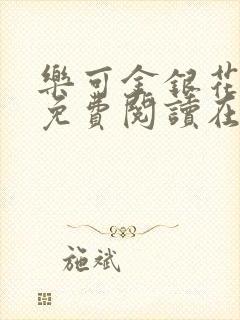 樂可金銀花
免費閱讀在
施斌